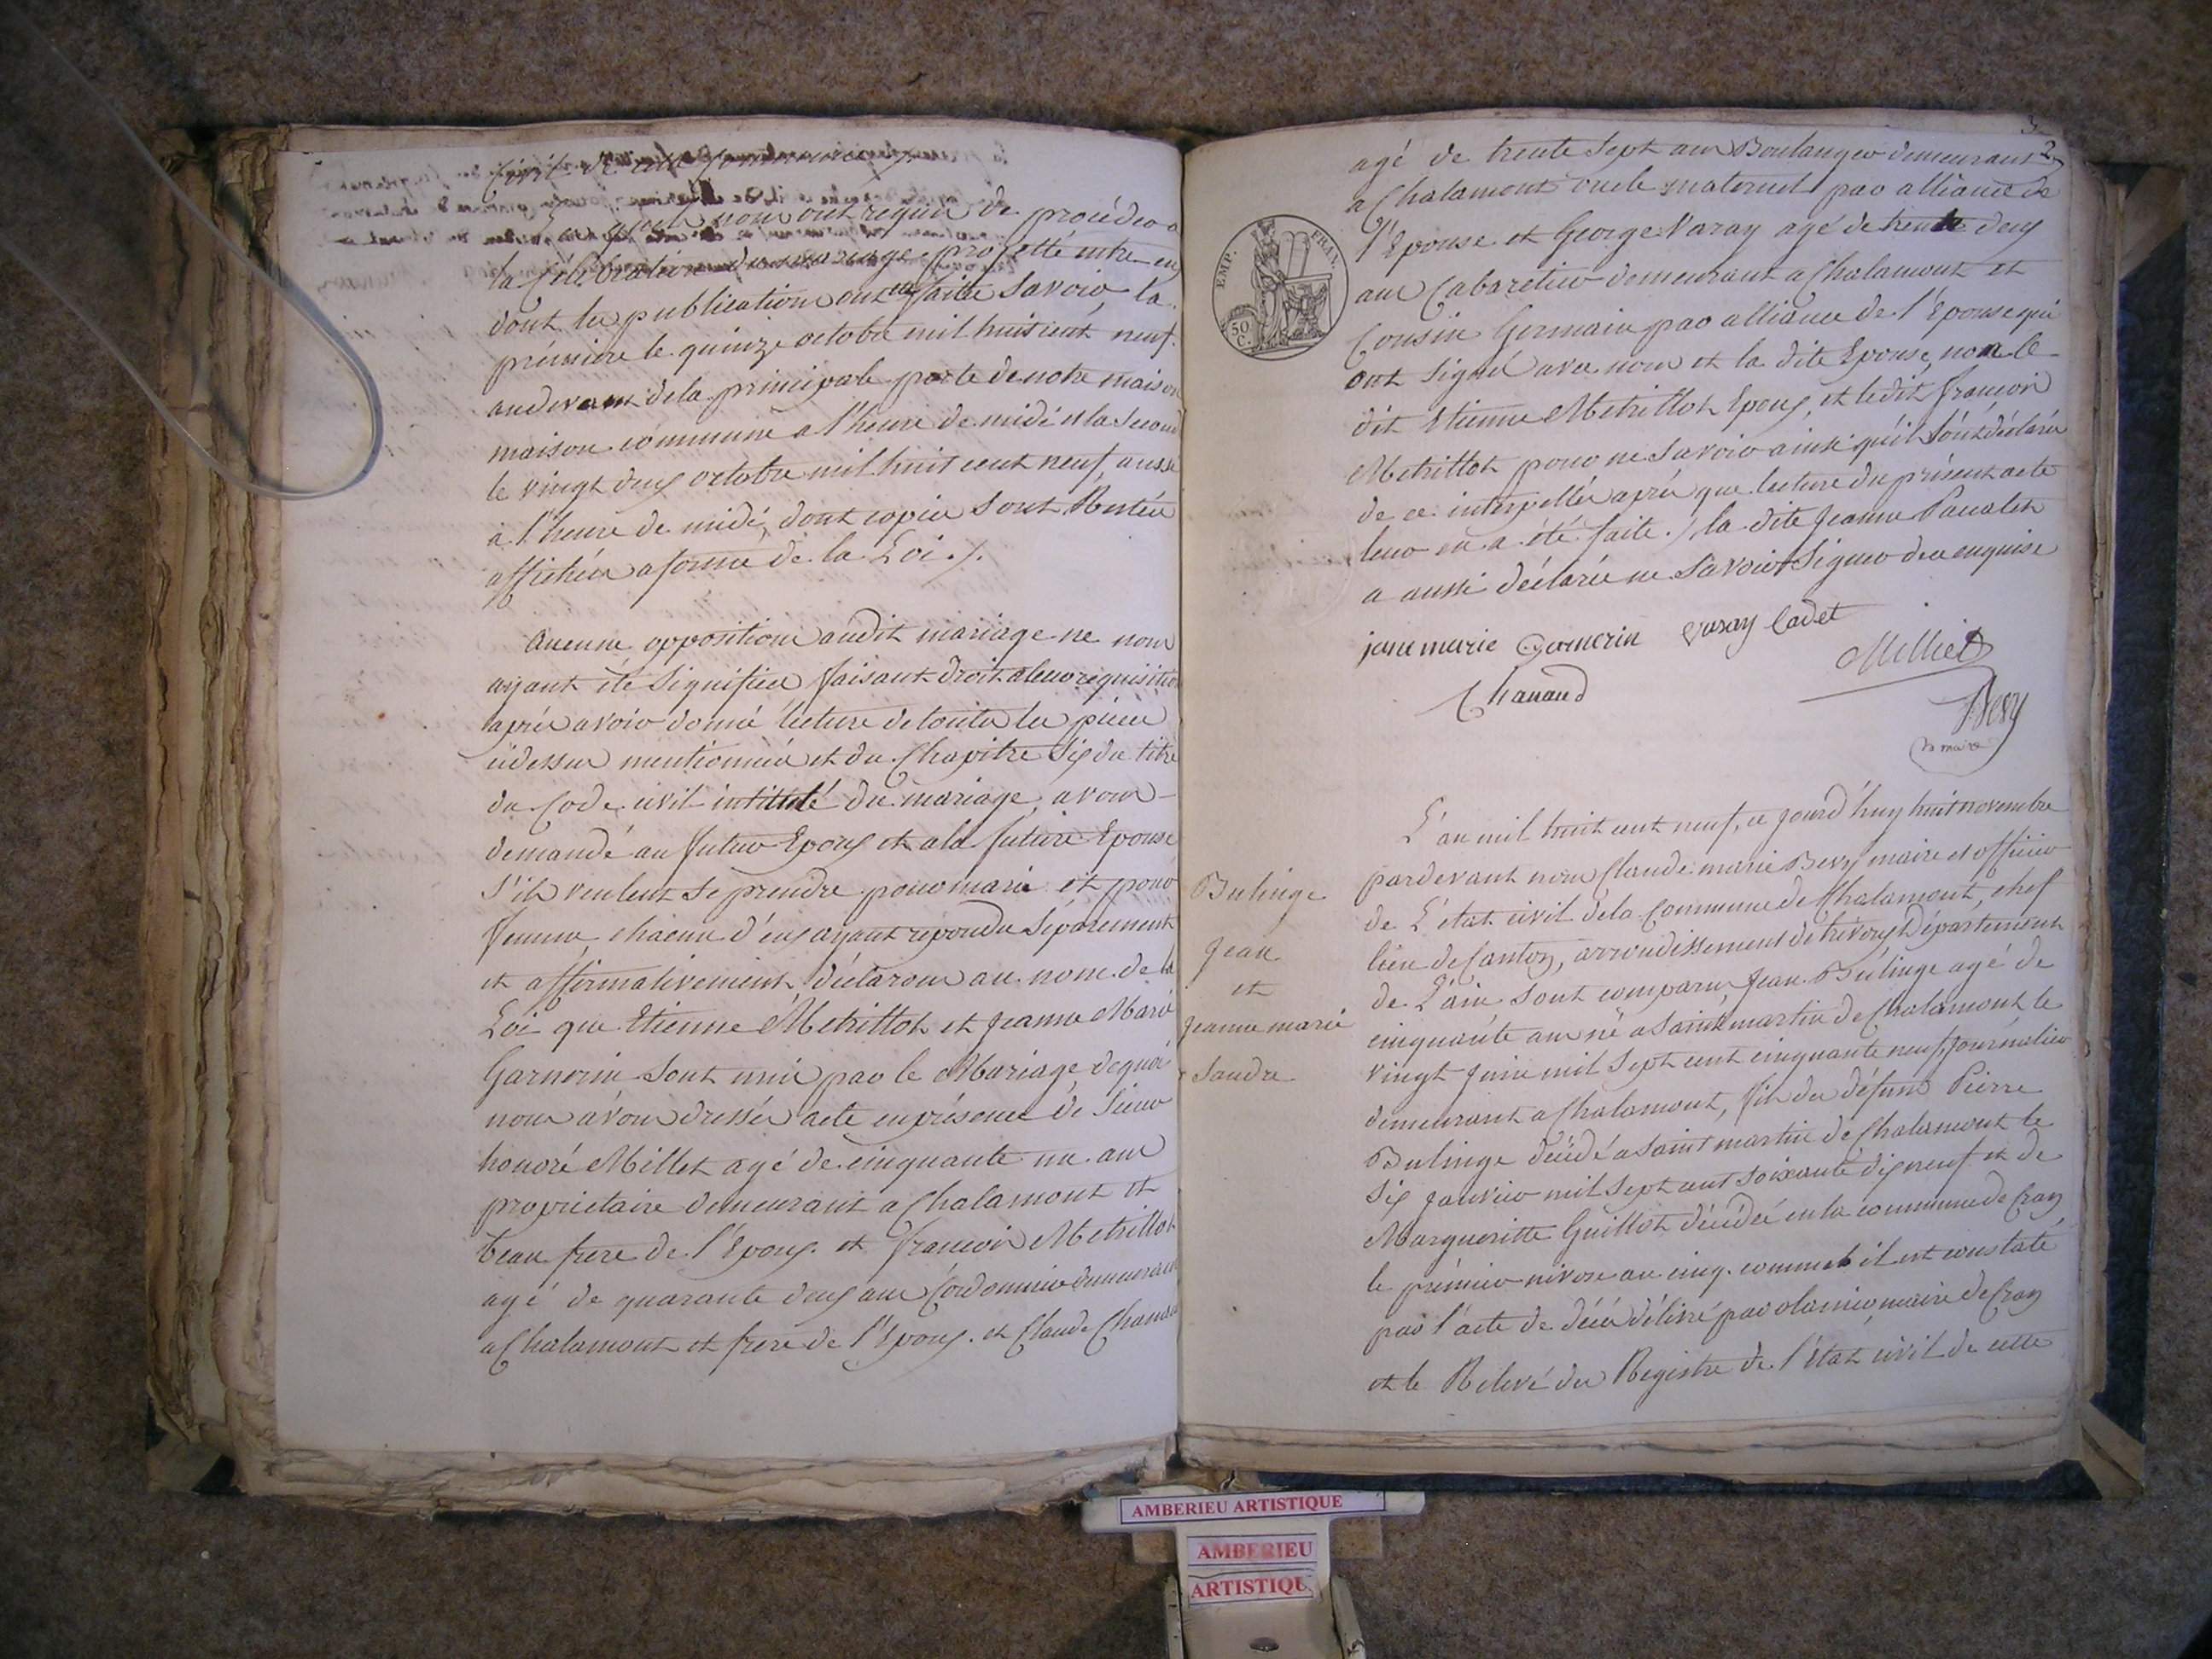 Civil de cette Commune ./.
Lesquels nous ont requis de procéder a
la Célébration du mariage projetté entre eux
dont les publications ont été faites Savoir, la
prémière le quinze octobre mil huit cent neuf
au devant de la principale porte de notre maison
maison commune a l'heure de midi et la Seconde
le vingt deux octobre mil huit cent neuf, aussi
à l'heure de midi, dont copies Sont Restées
affichées a forme de la Loi ./.
Aucune opposition audit mariage ne nous
ayant été Signifiée faisant droit a leur réquisition
après avoir donné lecture de toutes les pièces
cidessus mentionnées et du Chapitre Six du titre
du Code civil intitulé du mariage, avons
demandé au futur Epoux et a la future Epouse
S'ils veulent se prendre pour mari et pour
femme, chacun d'eux ayant repondu Séparement
et affirmativement, déclarons au nom de la
Loi que Etienne Metrillot et Jeanne Marie
Garnerin Sont unis par le Mariage de quoi
nous avons dressés acte en présence de Sieur
honoré Millet agé de cinquante un ans
propriétaire demeurant a Chalamont et
beau frere de l'Epoux. et François Metrillot
agé de quarante deux ans Cordonnier demeurant
a Chalamont et frere de l'Epoux. et Claude Chanaud
agé de trente Sept ans Boulanger demeurant
a Chalamont oncle maternel par alliance de
l'Epouse et George Varay agé de trente deux
ans Cabaretier demeurant a Chalamont et
Cousin Germain par alliance de l'Epouse qui
ont Signé avec nous et la dite Epouse, non le
dit Etienne Metrillot Epoux, et ledit françois
Metrillot pour ne Savoir ainsi qu'ils l'ont déclarés
de ce interpellés après que lecture du présent acte
leur en a été faite ./. la dite Jeanne
a aussi déclarée ne Savoir Signer de ce enquise
EMP. FRAN.
50 C.
jane marie Garnerin varay Cadet
Milliet
Chanaud
Bevy
maire
Bulinge
Jean
et
Jeanne marie
Saudre
L'an mil huit cent neuf, ce jourd'huy huit novembre
pardevant nous Claude marie Bevy maire et officier
de L'état civil de la Commune de Chalamont, chef
lieu de Canton, arrondissement de trévoux Département
de L'ain Sont comparus Jean Bulinge agé de
cinquante ans né a Saint martin de Chalamont le
vingt Juin mil Sept cent cinquante neuf, Journalier
demeurant a Chalamont, fils du défunt Pierre
Bulinge décédé a Saint martin de Chalamont le
Six Janvier mil Sept cent Soixante dix neuf et de
Margueritte Guillot décédée en la commune de Cran
le prémier nivose an cinq. comme il est constaté
par l'acte de décès délivré par maire de Cran
et le Relevé du Registre de l'état civil de cette
AMBERIEU ARTISTIQUE
AMBERIEU
ARTISTIQU